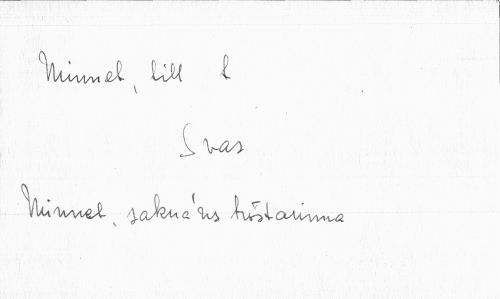 Minnet, till t
Svas
Minnet, sakná'ns tröstarinna